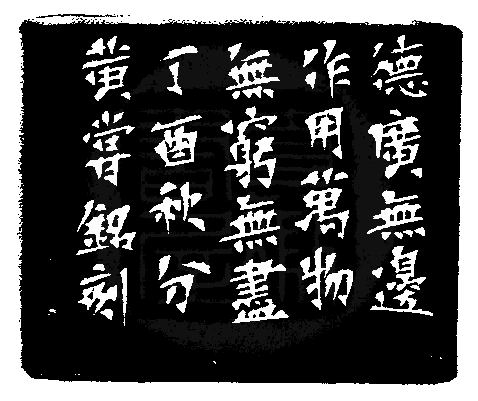 德廣無邊
作用萬物
無窮無盡
丁酉秋分
黃嘗銘刻